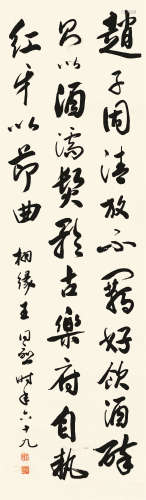 趙子固清放不羈好飲酒醉
則以酒濡髮歌古樂府自執
紅牙以節曲
栩緣王同愈時年六十九